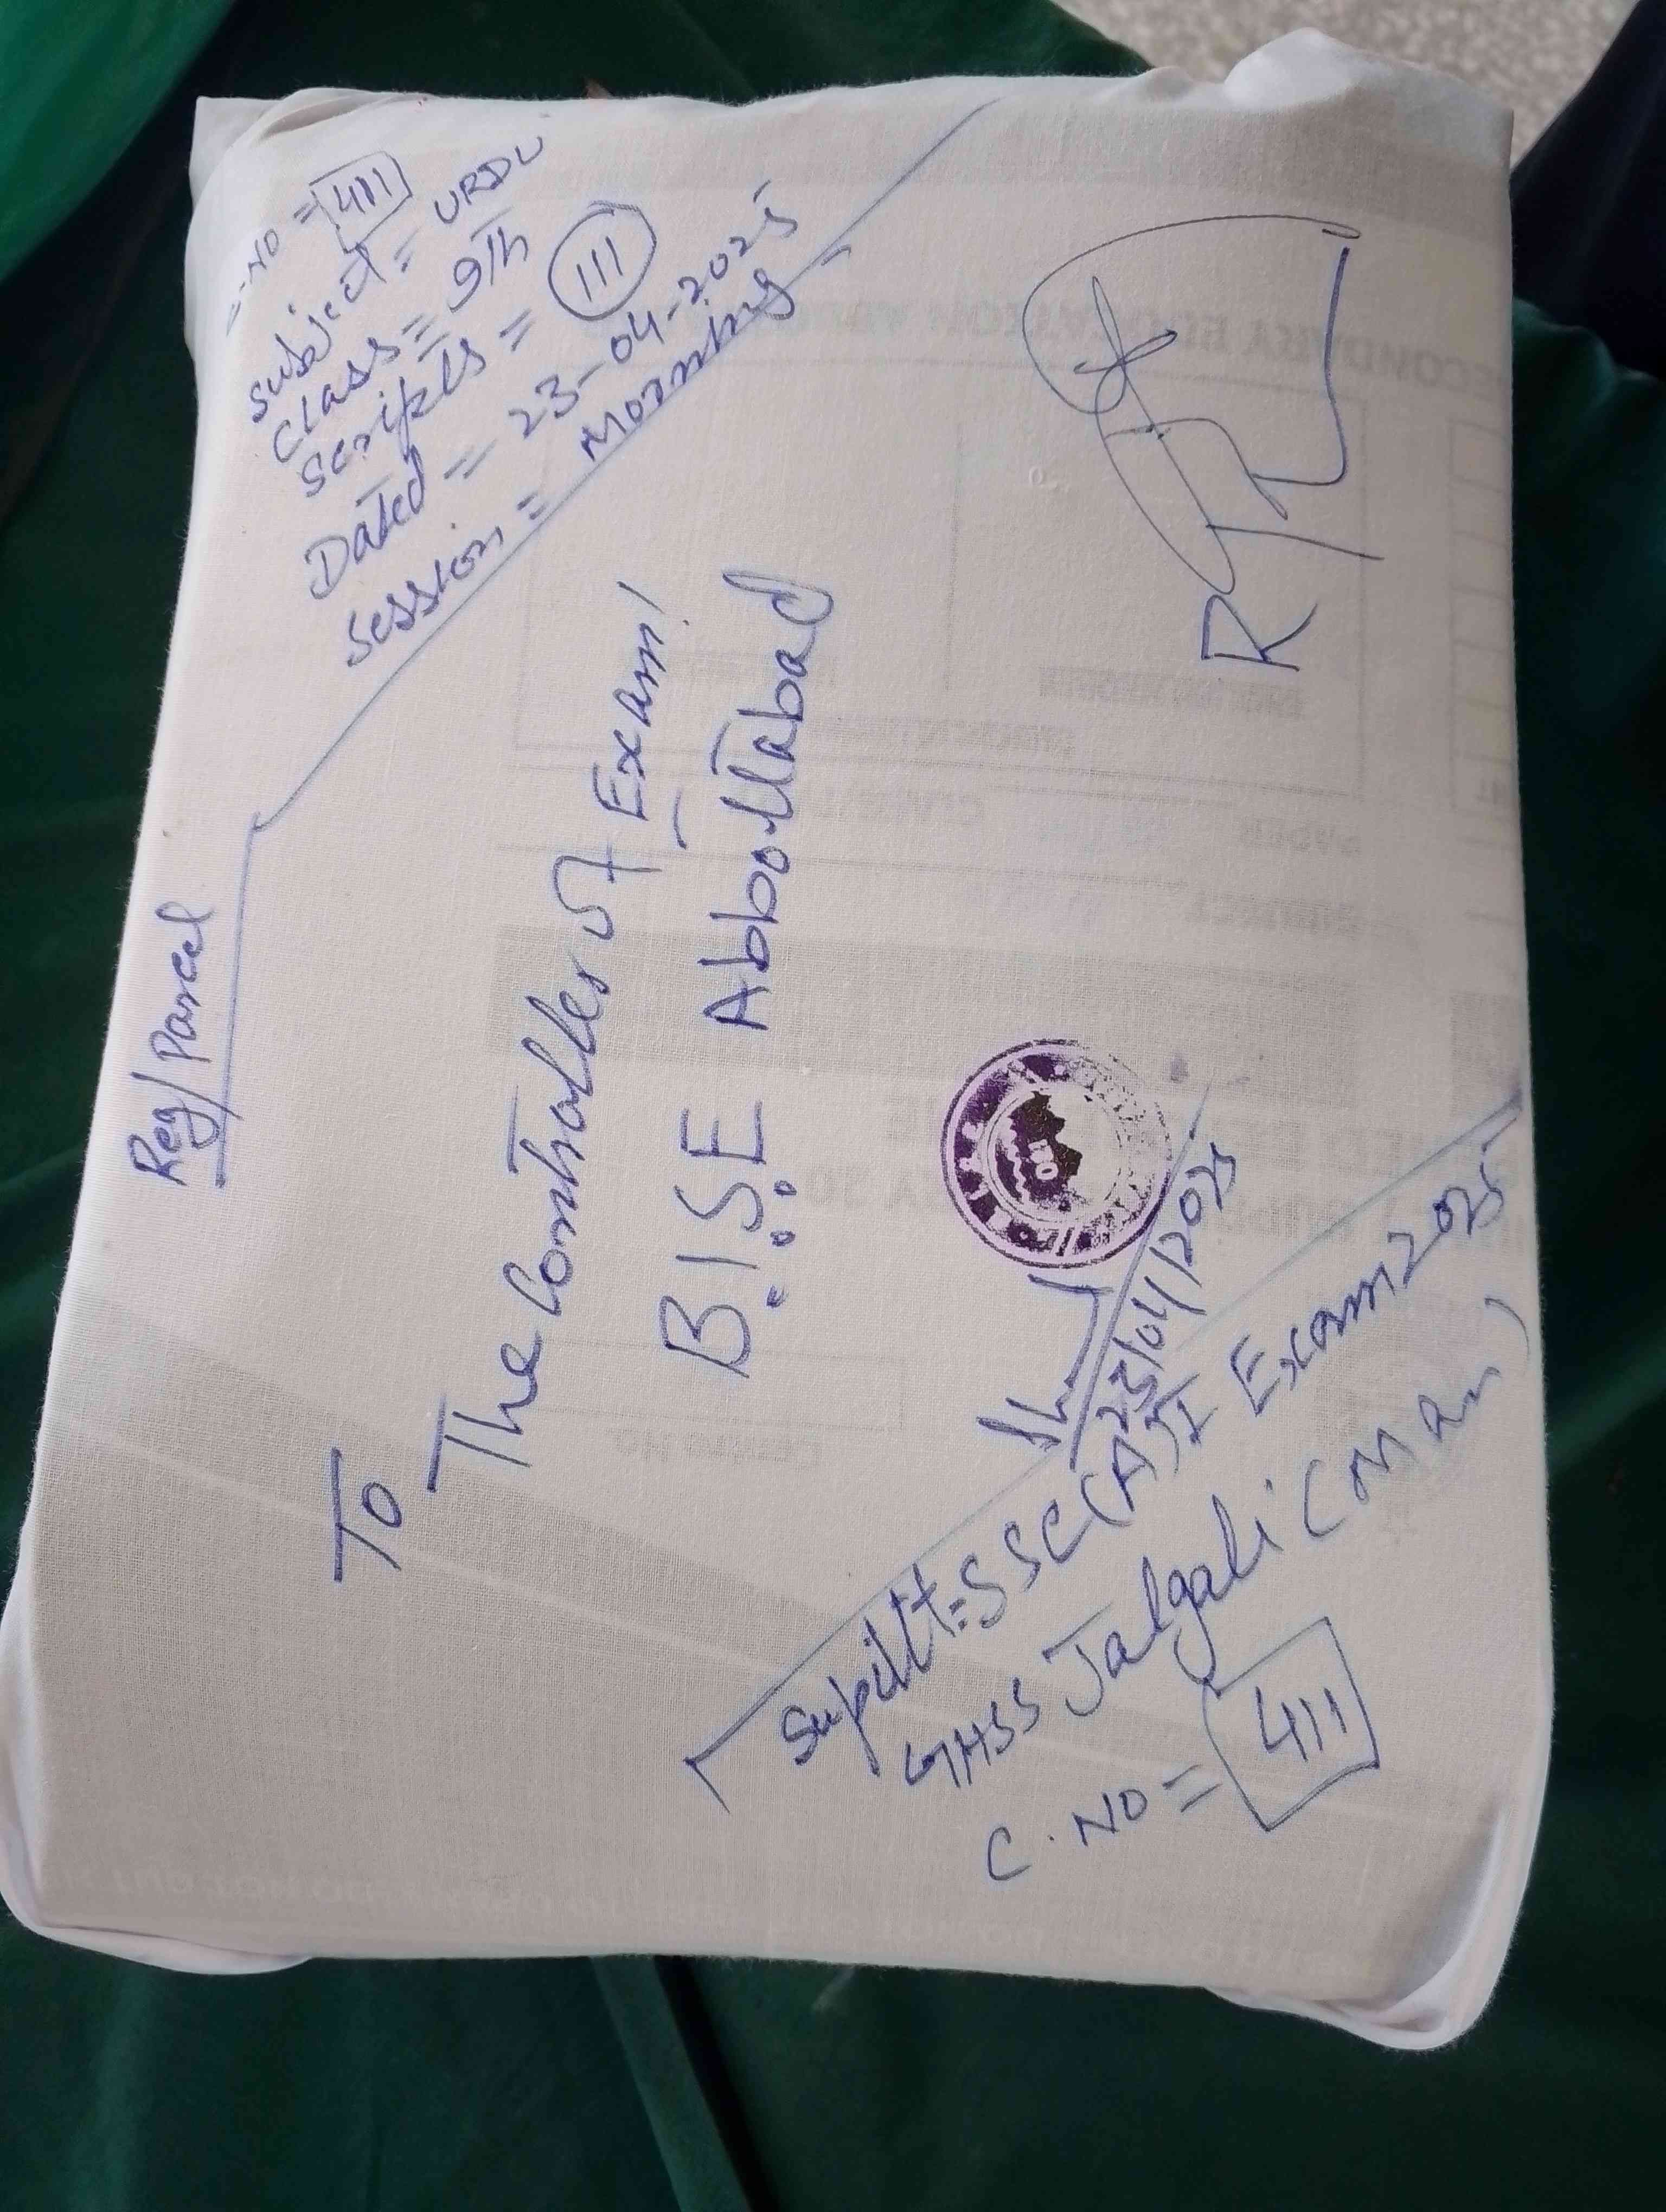 Reg/Parcel
C-NO = 411
Subject = URDU
Class = 9th
Scripts = 111
Dated = 23-04-2025
Session = Morning
To
The Controller of Exam!
B.I.S.E Abbottabad
R
23/04/2025
Supdtt: SSC(A)I Exam 2025
GHSS Jalgali (Man)
C.NO = 411